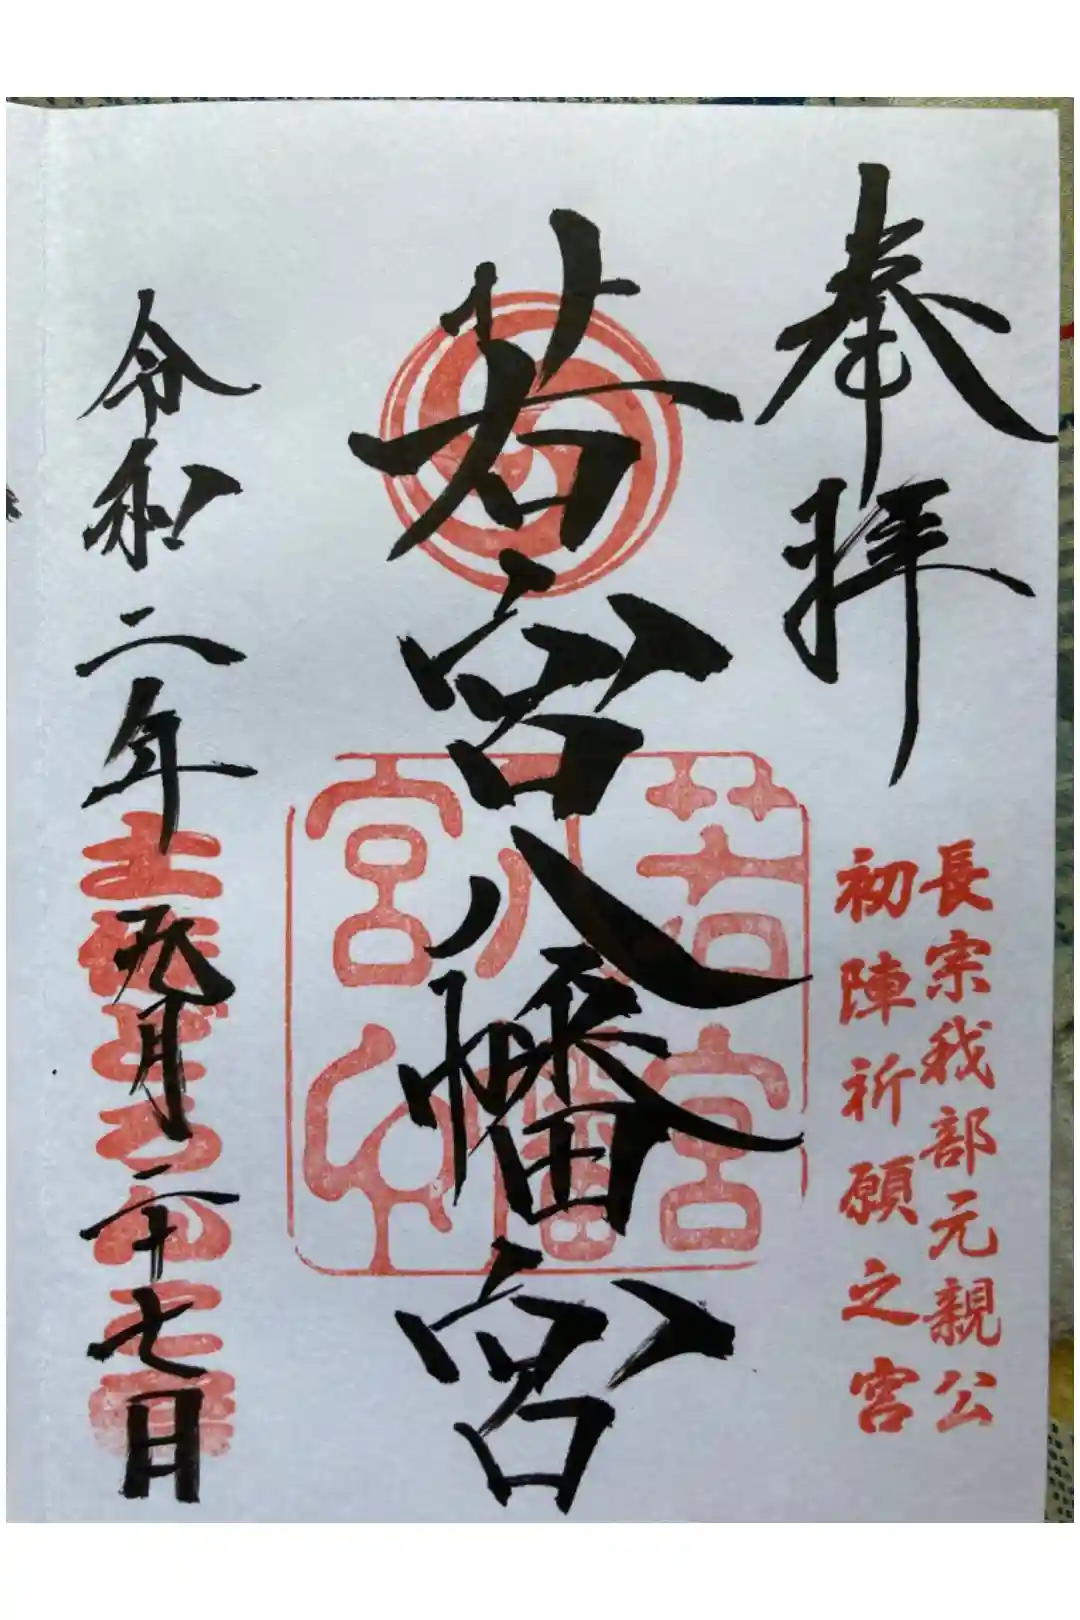 奉拝
長宗我部元親公
初陣祈願之宮
若宮八幡宮
若宮
八幡
宮
令和二年九月二十七日